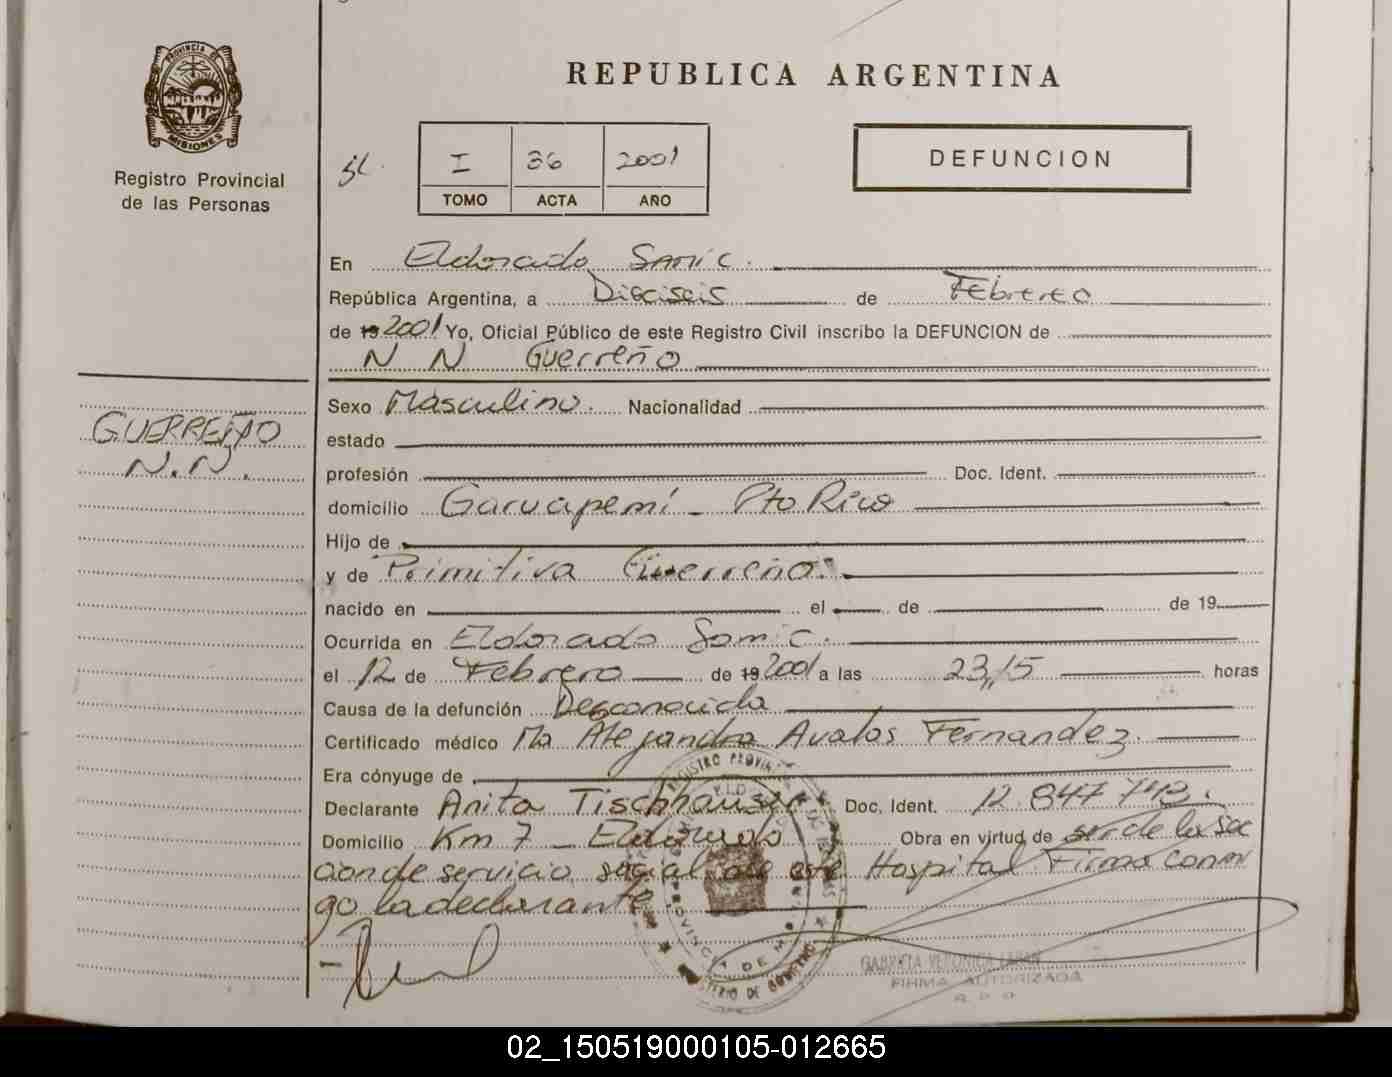 PROVINCIA DE
MISIONES
Registro Provincial
de las Personas
REPUBLICA ARGENTINA
I 36 2001
TOMO ACTA AÑO
DEFUNCION
En Eldorado Samic.
República Argentina, a Dieciseis de Febrero
de 19 2001 Yo, Oficial Público de este Registro Civil inscribo la DEFUNCION de
N N Guerreño
GUERREÑO
N.N.
Sexo Masculino. Nacionalidad
estado
profesión Doc. Ident.
domicilio Garuapemí - Pto Rico
Hijo de
y de Primitiva Guerreño.
nacido en el de de 19
Ocurrida en Eldorado Samic.
el 12 de Febrero de 19 2001 a las 23,,15 horas
Causa de la defunción Desconocida
Certificado médico Ma Alejandra Avalos Fernandez.
Era cónyuge de
Declarante Anita Tischhauser Doc. Ident. 12.847.742.
Domicilio Km 7 - Eldorado Obra en virtud de ser de la sec
cion de servicio social de este Hospital Firma conmi
go la declarante
FIRMA AUTORIZADA
02_150519000105-012665